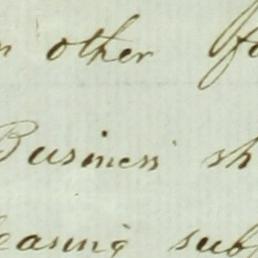 other
Business sh
easing sub